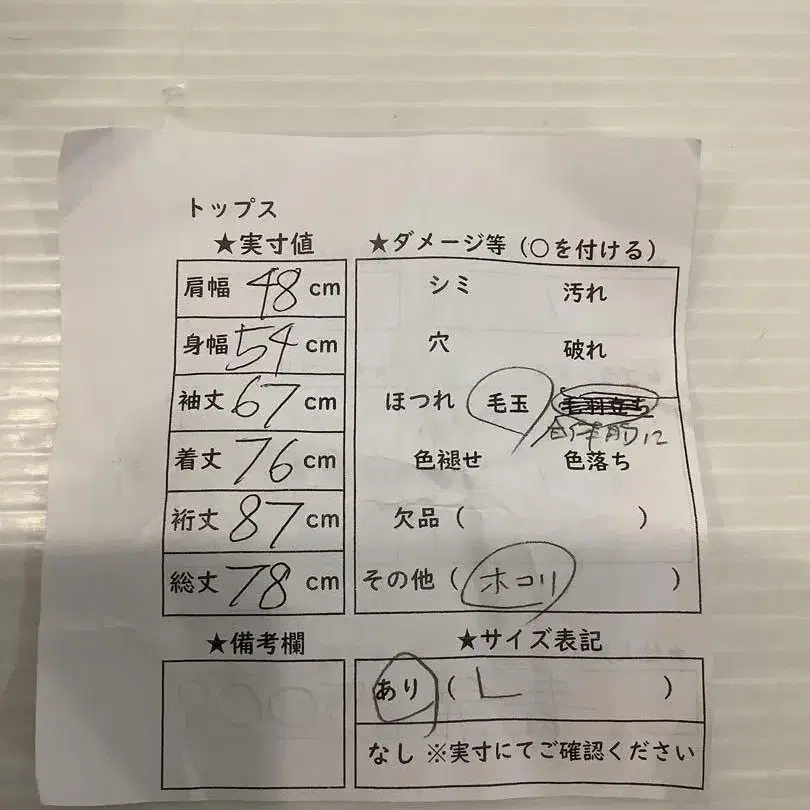 トップス
★実寸値
肩幅 48 cm
身幅 54 cm
袖丈 67 cm
着丈 76 cm
裄丈 87 cm
総丈 78 cm
★備考欄
★ダメージ等(○を付ける)
シミ 汚れ
穴 破れ
ほつれ 毛玉 毛羽立ち
全体的に
色褪せ 色落ち
欠品( )
その他(ホコリ )
★サイズ表記
あり( L )
なし ※実寸にてご確認ください